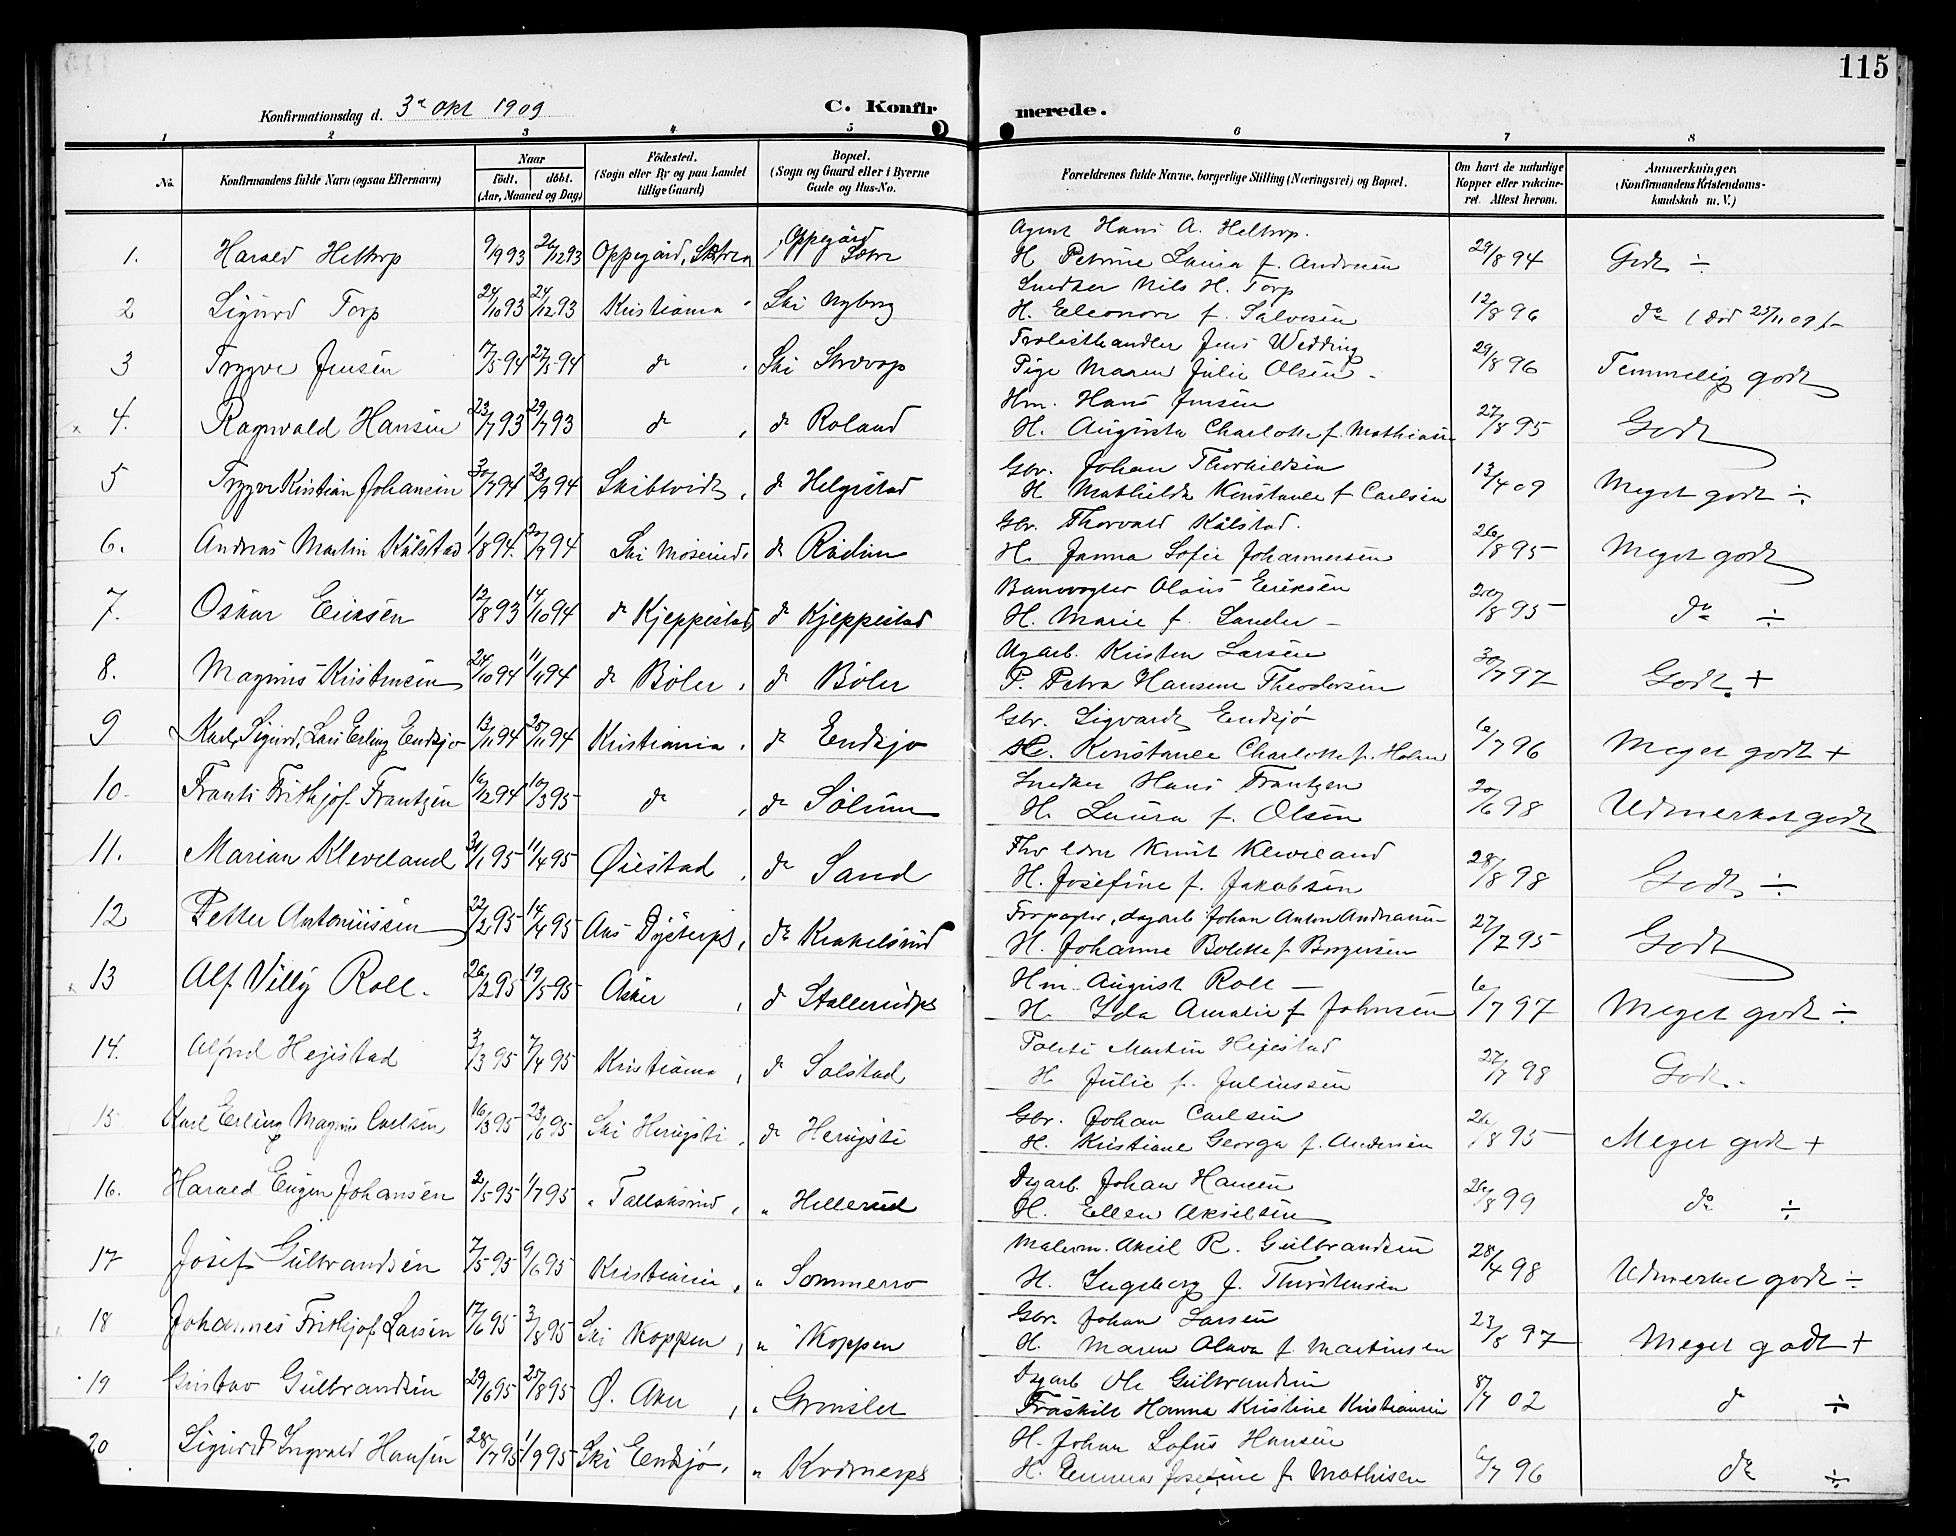 115
Konfirmationsdag d. 3die Okt 1909 C. Konfirmerede.
1 2 3 4 5 6 7 8
No. Konfirmandens fulde Navn (ogsaa Efternavn) Naar født. døbt. (Aar, Maaned og Dag) Fødested. (Sogn eller By og paa Landet tillige Gaard) Bopæl. (Sogn og Gaard eller i Byerne Gade og Hus-No. Forældrenes fulde Navne, borgerlige Stilling (Næringsvei) og Bopæl. Om havt de naturlige Kopper eller vakcineret. Attest herom. Anmærkninger. (Konfirmandens Kristendomskundskab m. V.)
Agent Hans A. Heltorp.
1. Harald Heltorp 9/9 93 26/12 93 Oppegård, Oppegård H. Petrine Laura f. Andersen 29/8 94 Godt ÷
Snedker Nils H. Torp
2 Sigurd Torp 24/10 93 24/12 93 Kristiania Ski Nyborg H. Eleonore f. Salvesen 12/8 96 do (død 25/11 09)
Jens Wedding
3 Trygve Jensen 17/5 94 27/5 94 do Ski Pige Maren Julie Olsen 29/8 96 Temmelig godt
Hm. Hans Jensen
4. Ragnvald Hansen 23/7 93 29/7 93 do do Roland H. Augusta Charlotte f. Mathisen 27/8 95 Godt
Gbr. Johan Thorkildsen
5 Trygve Kristian Johansen 30/7 94 23/9 94 Skibtvedt do Helgestad H. Mathilde Konstance f. Carlsen 13/4 09 Meget godt ÷
Gbr. Thorvald Kålstad.
6. Andreas Martin Kålstad 1/8 94. 2/9 94 Ski do Rådim H. Janna Sofie Johannessen 26/8 95 Meget godt
Banevogter Olaus Eriksen
7. Oskar Eriksen 12/8 93 14/10 94 do Kjeppestad do Kjeppestad H. Marie f. Sander 20/8 95 do ÷
Kristen Larsen
8. Magnus Kristensen 24/10 94 11/11 94 do Bøler do Bøler P. Petra Hansine Theodorsen 30/7 97 Godt. +
Gbr. Sigvardt Endsjø
9 Karl, Sigurd, Lars Erling Endsjø 13/11 94 25/11 94 Kristiania do Endsjø H. Konstance Charlotte f. Holm 6/7 96 Meget godt +
Snedker Hans Frantzen
10. Frants Frithjof Frantzen 16/12 94 10/3 95 do do Solum H. Laura f. Olsen 20/6 98 Udmerket godt
Knut Kleveland
11. Marian Kleveland 31/1 95 11/4 95 Øiestad do Sand H. Josefine f. Jakobsen 28/8 98 Godt ÷
dagarb Johan Anton Andreasen
12 Petter Antoniussen 22/2 95 14/4 95 Aas do Krakelsrud H. Johanne Bolette f. Borgersen 27/7 95 Godt
Hm August Roll
13 Alf Villy Roll. 26/2 95 19/5 95 Asker do Stallerudpl H. Ida Amalie f Johnsen 6/7 97 Meget godt ÷
Politi Martin Hejestad
14. Alfred Hejestad 3/3 95 7/4 95 Kristiania do Solstad H. Julie f. Juliussen 27/7 98 Godt.
Gbr. Johan Carlsen
15 Karl Erling Magnus Carlsen 16/3 95 23/6 95 Ski do H. Kristiane Georga f. Andersen 26/8 95 Meget godt +
Dgarb. Johan Hansen
16. Harald Eugen Johansen 2/5 95 1/7 95 " Tallaksrud " Hellerud H. Ellen Akselsen 26/8 99 do ÷
Malerm. Aksel R. Gulbrandsen
17 Josef Gulbrandsen 7/5 95 9/6 95 Kristiania " Sommerro H. Ingeborg f. Thorstensen 28/4 98 Udmerket godt ÷
Gbr. Johan Larsen
18 Johannes Frithjof Larsen 17/6 95 3/8 95 Ski Koppen " Koppen H. Maren Olava f Martinsen 23/8 97 Meget godt +
Dgarb Ole Gulbrandsen
19 Gustav Gulbrandsen 29/6 95 25/8 95 Ø. Aker " Fraskilt Hanna Kristine Kristiansen 8/7 02 do ÷
H. Johan Sofus Hansen
20 Sigurd Ingvald Hansen 28/7 95 1/9 95 Ski Endsjø " H. Emma Josefine f. Mathisen 6/7 96 do ÷